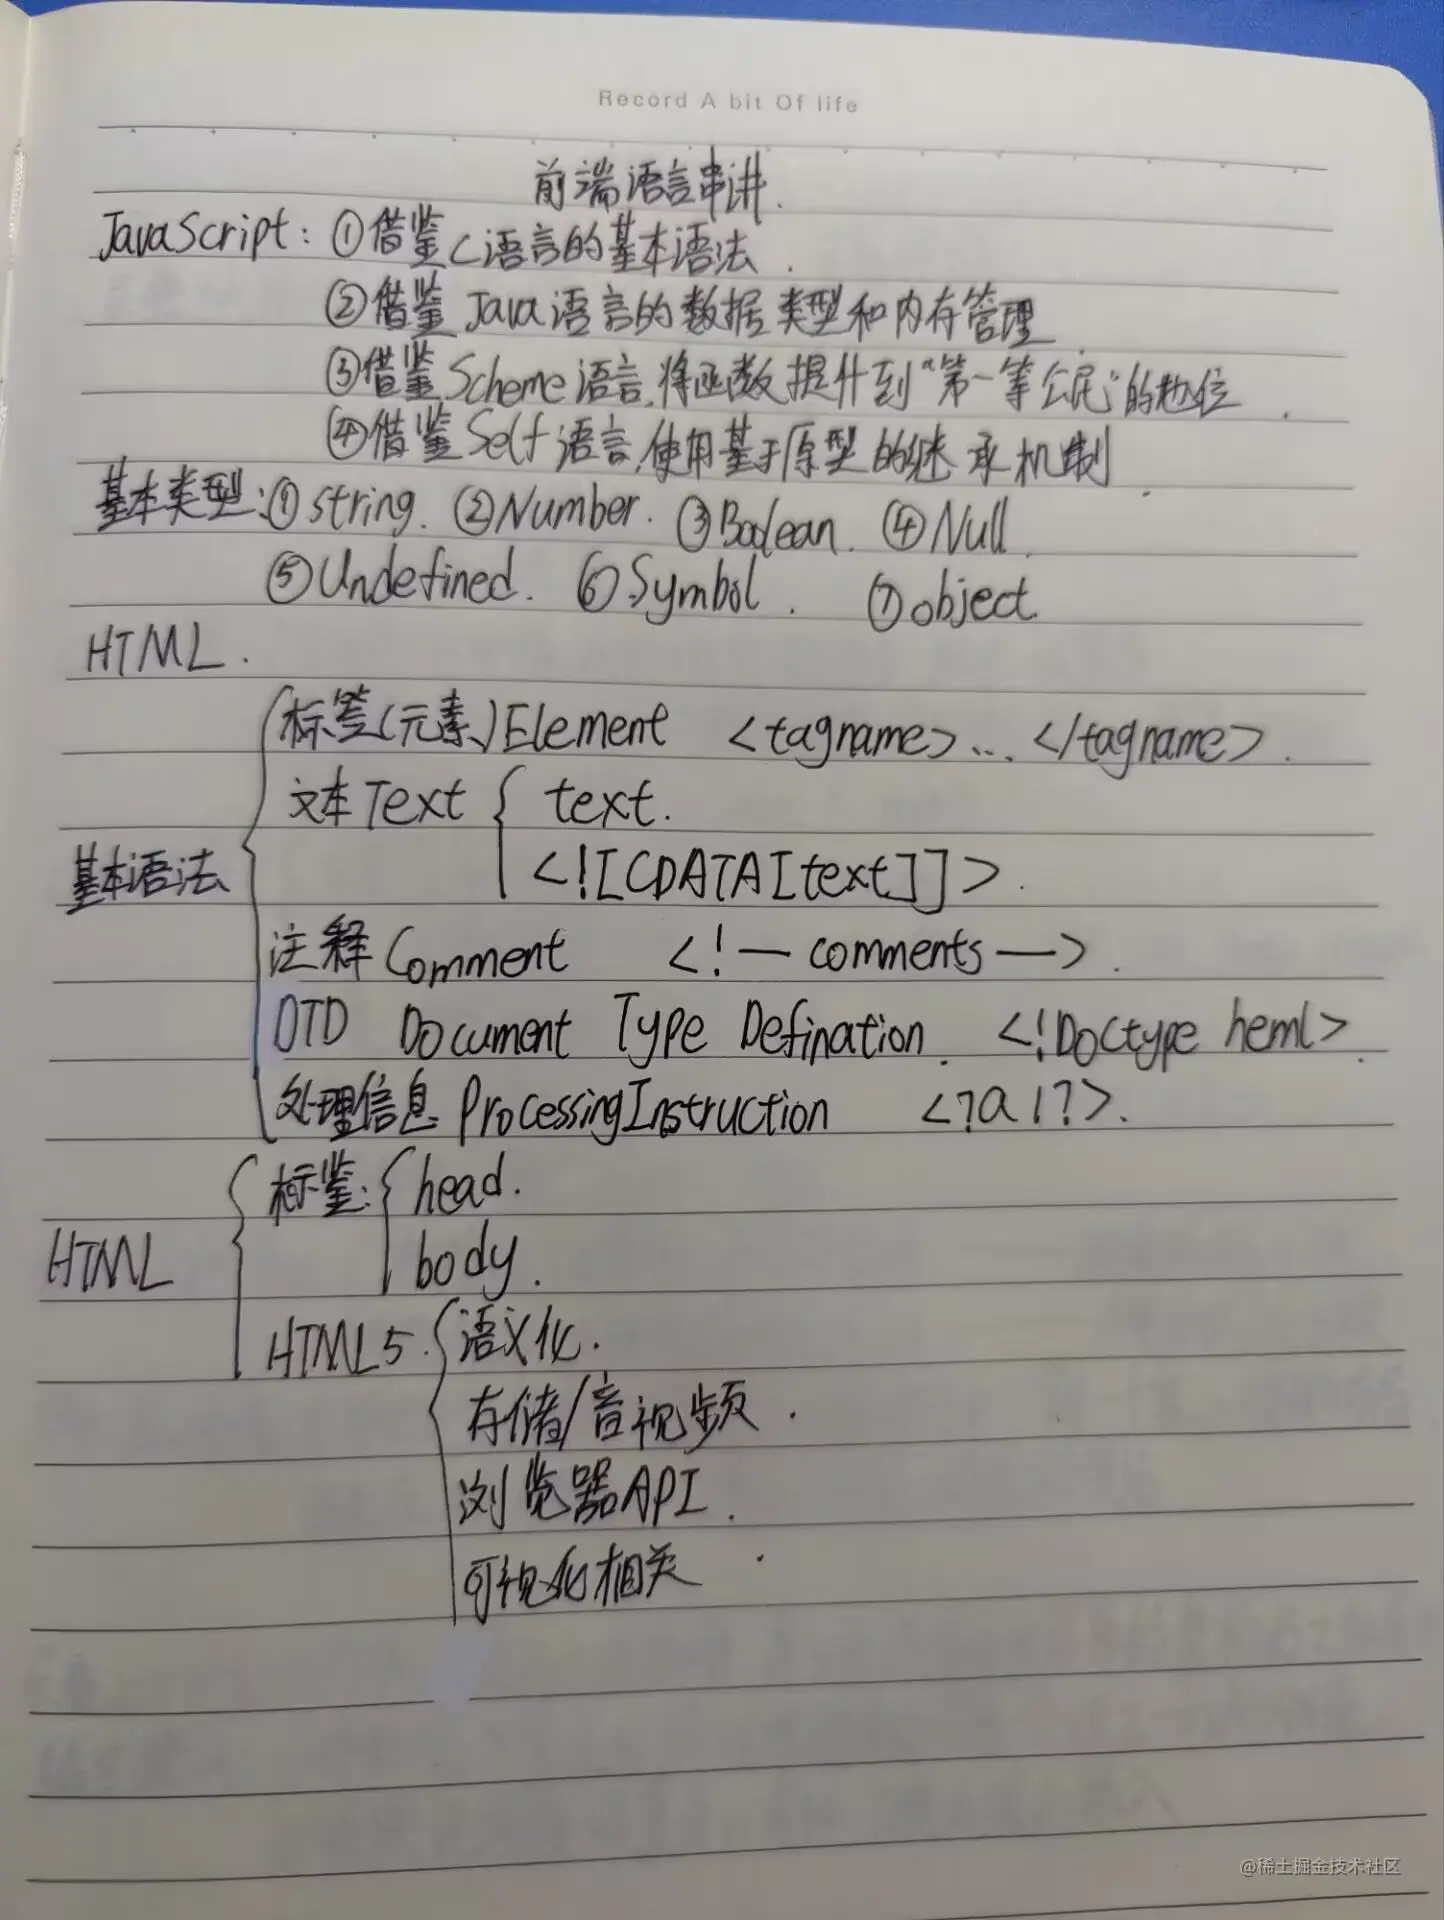 Record A bit Of life
前端语言串讲.
JavaScript: ①借鉴C语言的基本语法.
②借鉴Java语言的数据类型和内存管理.
③借鉴Scheme语言,将函数提升到"第一等公民"的地位.
④借鉴Self语言,使用基于原型的继承机制.
基本类型:①string. ②Number. ③Boolean. ④Null.
⑤Undefined. ⑥Symbol. ⑦object.
HTML.
标签(元素)Element <tagname>... </tagname>.
文本Text text.
基本语法 <![CDATA[text]]>.
注释Comment <!—comments—>.
DTD Document Type Defination. <!Doctype heml>.
处理信息ProcessingInstruction <?a 1?>.
标鉴: head.
HTML body.
HTML5. 语义化.
存储/音视频.
浏览器API.
可视化相关.
@稀土掘金技术社区